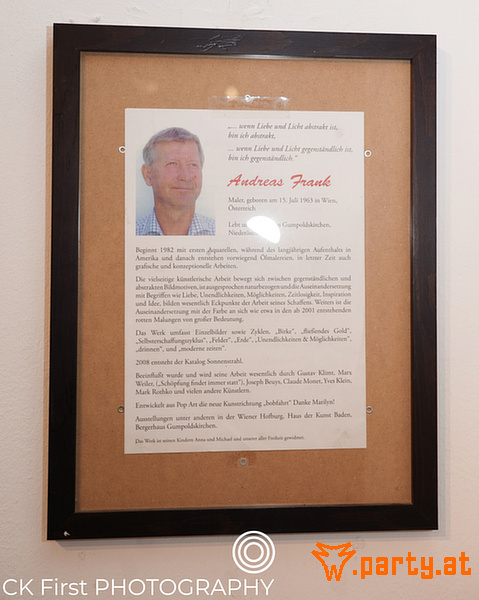 „... wenn Liebe und Licht abstrakt ist,
bin ich abstrakt.
... wenn Liebe und Licht gegenständlich ist.
bin ich gegenständlich."
Andreas Frank
Maler, geboren am 15. Juli 1963 in Wien,
Österreich
Lebt Gumpoldskirchen,
Beginnt 1982 mit ersten Aquarellen, während des langjährigen Aufenthalts in
Amerika und danach entstehen vorwiegend Ölmalereien, in letzter Zeit auch
grafische und konzeptionelle Arbeiten.
Die vielseitige künstlerische Arbeit bewegt sich zwischen gegenständlichen und
abstrakten Bildmotiven, ist ausgesprochen naturbezogen und die Auseinandersetzung
mit Begriffen wie Liebe, Unendlichkeiten, Möglichkeiten, Zeitlosigkeit, Inspiration
und Idee, bilden wesentlich Eckpunkte der Arbeit seines Schaffens. Weiters ist die
Auseinandersetzung mit der Farbe an sich wie etwa in den ab 2001 entstehenden
rotten Malungen von großer Bedeutung.
Das Werk umfasst Einzelbilder sowie Zyklen, „Birke", „fließendes Gold",
„Selbsterschaffungszyklus", „Felder", „Erde", „Unendlichkeiten & Möglichkeiten",
„drinnen", und „moderne zeiten".
2008 entsteht der Katalog Sonnenstrahl.
Beeinflußt wurde und wird seine Arbeit wesentlich durch Gustav Klimt, Marx
Weiler, („Schöpfung findet immer statt"), Joseph Beuys, Claude Monet, Yves Klein,
Mark Rothko und vielen andere Künstlern.
Entwickelt aus Pop Art die neue Kunstrichtung „bobfahrt" Danke Marilyn!
Ausstellungen unter anderen in der Wiener Hofburg, Haus der Kunst Baden,
Bergerhaus Gumpoldskirchen.
Das Werk ist seinen Kindern Anna und Michael und unsere aller Freiheit gewidmet.
CK First PHOTOGRAPHY
w.party.at